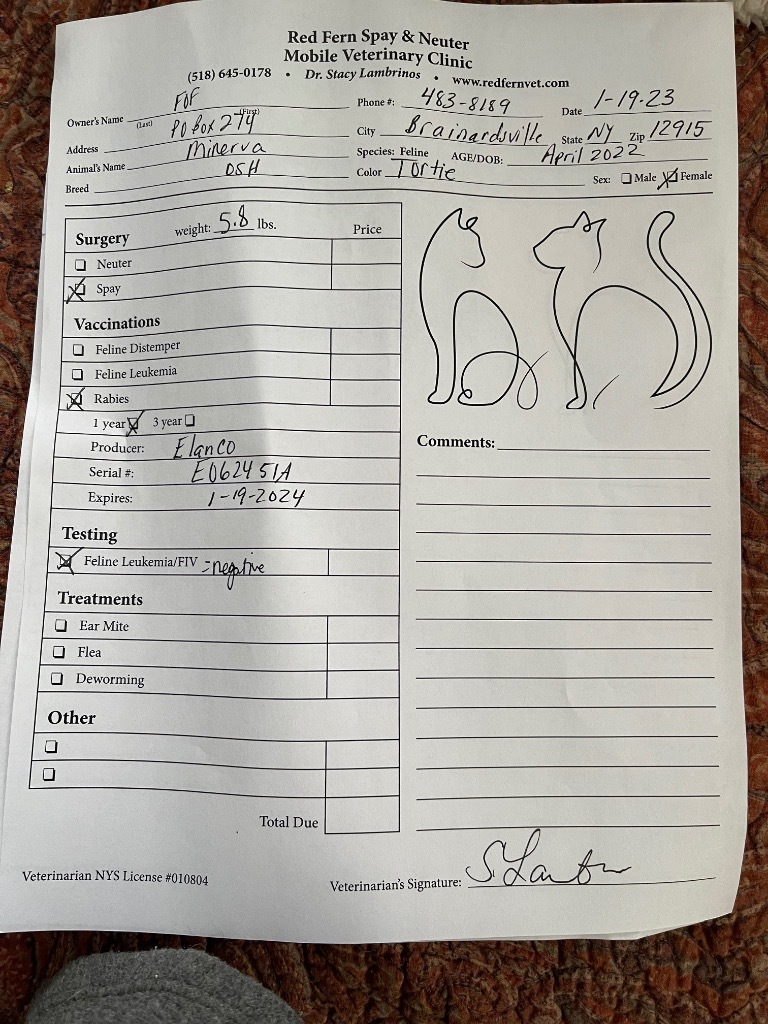 Red Fern Spay & Neuter
Mobile Veterinary Clinic
(518) 645-0178 • Dr. Stacy Lambrinos • www.redfernvet.com
Owner's Name (Last) FOF (First) Phone #: 483-8189 Date 1-19-23
Address PO Box 274 City Brainardsville State NY Zip 12915
Animal's Name Minerva Species: Feline AGE/DOB: April 2022
Breed DSH Color Tortie Sex: Male Female
Surgery weight: 5.8 lbs. Price
Neuter
Spay
Vaccinations
Feline Distemper
Feline Leukemia
Rabies
1 year 3 year
Producer: Elanco
Serial #: E062451A
Expires: 1-19-2024
Testing
Feline Leukemia/FIV = negative
Treatments
Ear Mite
Flea
Deworming
Other
Total Due
Comments:
Veterinarian NYS License #010804
Veterinarian's Signature: